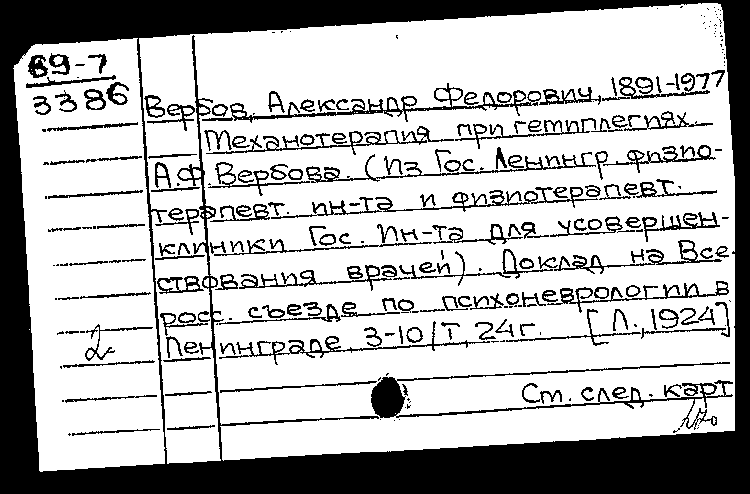 69-7
3386
Вербов, Александр Федорович, 1891-1977
Механотерапия при гемиплегиях.
А.Ф. Вербова. (Из Гос. Ленингр. физио-
терапевт. ин-та и физиотерапевт.
клиники Гос. Ин-та для усовершен-
ствования врачей). Доклад на Все-
росс. съезде по психоневрологии в
Ленинграде, 3-10/I, 24 г. [Л., 1924]
2
См. след. карт